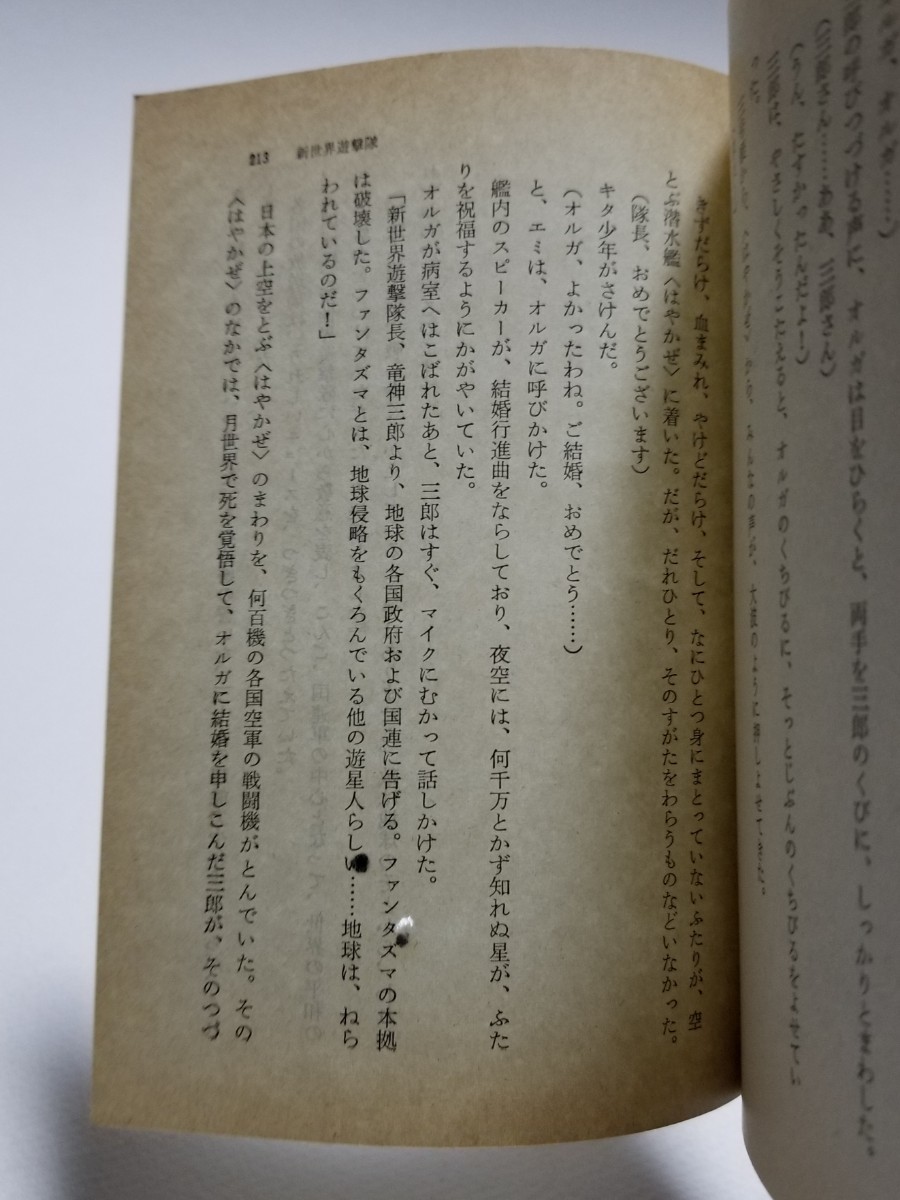 オルガ、オルガ……)
郎の呼びつづける声に、オルガは目をひらくと、両手を三郎のくびに、しっかりとまわした。
(三郎さん……ああ、三郎さん)
(うん、たすかったんだよ！)
三郎は、やさしくそうこたえると、オルガのくちびるに、そっとじぶんのくちびるをよせてい
った。
みんなの声が、大波のように押しよせてきた。
213 新世界遊撃隊
きずだらけ、血まみれ、やけどだらけ、そして、なにひとつ身にまとっていないふたりが、空
とぶ潜水艦〈はやかぜ〉に着いた。だが、だれひとり、そのすがたをわらうものなどいなかった。
(隊長、おめでとうございます)
キタ少年がさけんだ。
(オルガ、よかったわね。ご結婚、おめでとう……)
と、エミは、オルガに呼びかけた。
艦内のスピーカーが、結婚行進曲をならしており、夜空には、何千万とかず知れぬ星が、ふた
りを祝福するようにかがやいていた。
オルガが病室へはこばれたあと、三郎はすぐ、マイクにむかって話しかけた。
「新世界遊撃隊長、竜神三郎より、地球の各国政府および国連に告げる。ファンタズマの本拠
は破壊した。ファンタズマとは、地球侵略をもくろんでいる他の遊星人らしい……地球は、ねら
われているのだ！」
日本の上空をとぶ〈はやかぜ〉のまわりを、何百機の各国空軍の戦闘機がとんでいた。その
〈はやかぜ〉のなかでは、月世界で死を覚悟して、オルガに結婚を申しこんだ三郎が、そのつづ